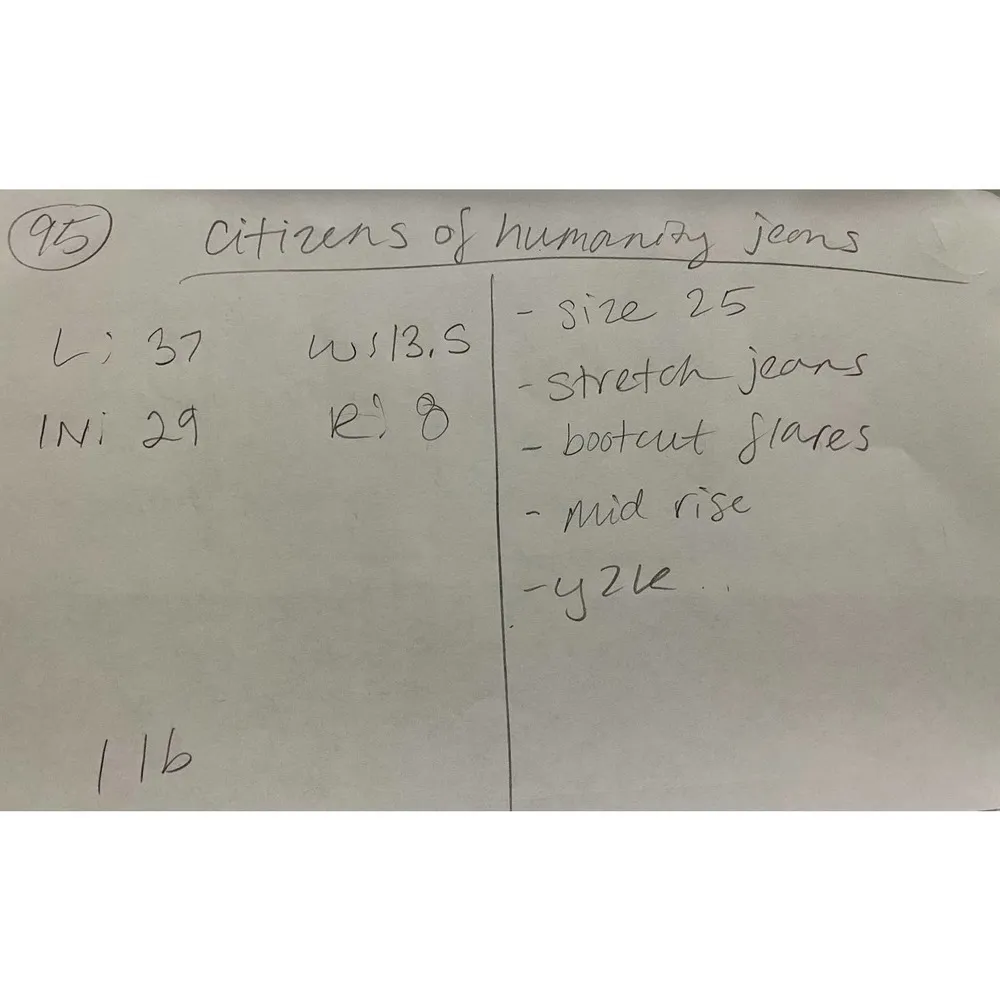 95 citizens of humanity jeans
L: 37 W: 13.5
IN: 29 R: 8
1 lb
- size 25
- stretch jeans
- bootcut flares
- mid rise
- y2k ..